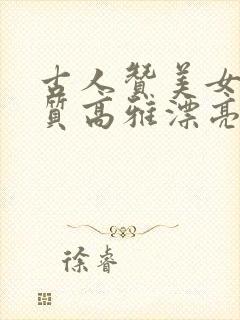 古人贊美女
質高雅漂亮
徐睿